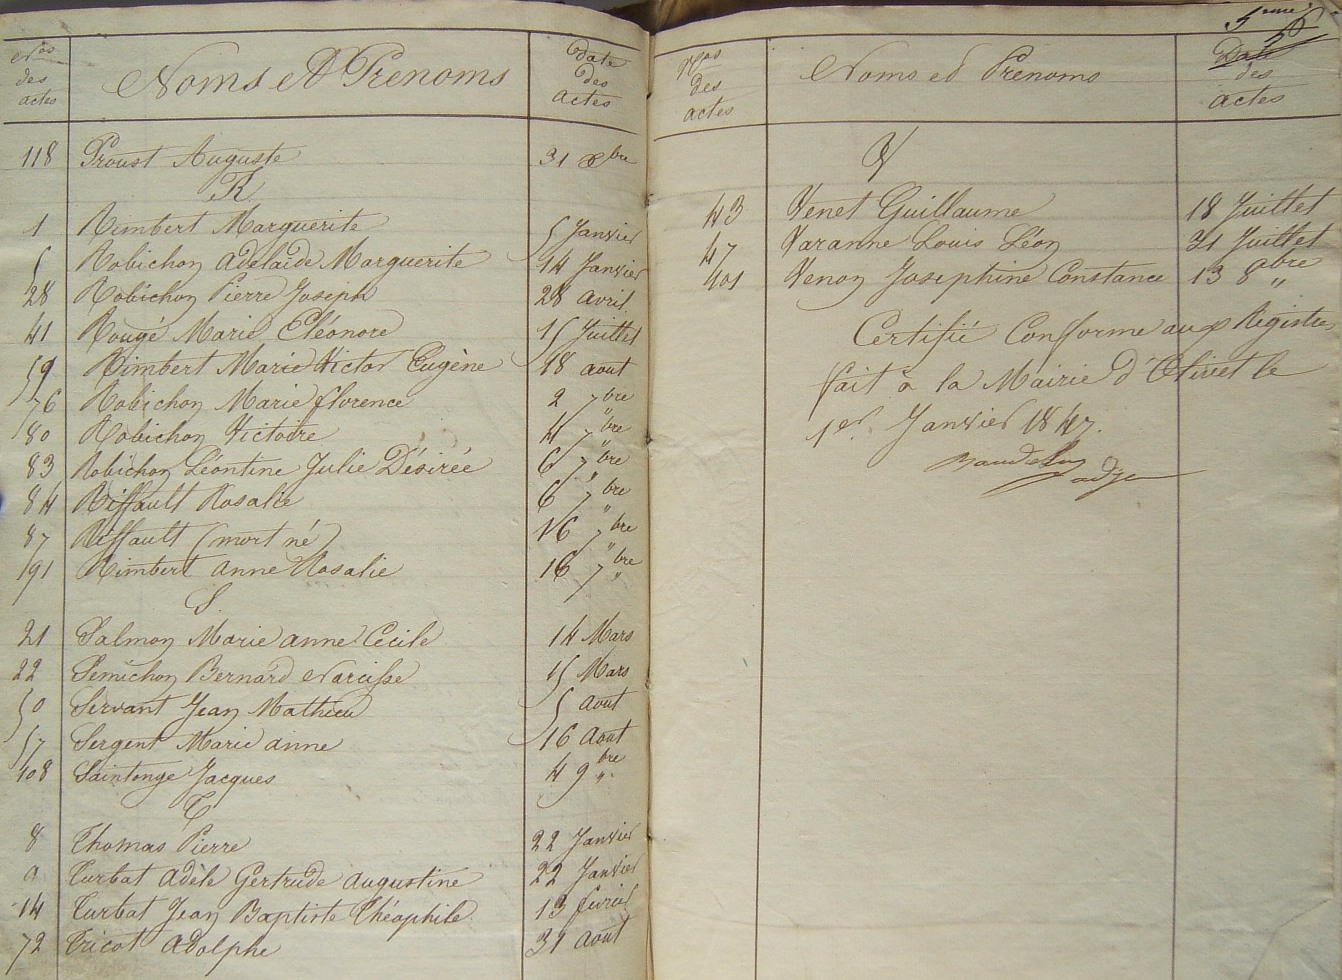 Nos des actes Noms et Prenoms Date des actes
118 Proust Auguste 31 Xbre
R
1 Rimbert Marguerite 5 Janvier
5 Robichon Adelaïde Marguerite 14 Janvier
28 Robichon Pierre Joseph 28 avril
41 Rougé Marie Eléonore 15 Juillet
59 Rimbert Marie Victor Eugène 18 aout
76 Robichon Marie florence 2 7bre
80 Robichon Victoire 4 7bre
83 Robichon Léontine Julie Désirée 6 7bre
84 Riffault Rosalie 6 7bre
87 Riffault (mort né) 16 7bre
191 Rimbert anne Rosalie 16 7bre
S
21 Salmon Marie anne Cecile 14 Mars
22 Semichon Bernard Narcisse 15 Mars
50 Servant Jean Mathieu 5 Aout
57 Sergent Marie anne 16 Aout
108 Saintonge Jacques 4 9bre
T
8 Thomas Pierre 22 Janvier
9 Turbat Adèle Gertrude Augustine 22 Janvier
14 Turbat Jean Baptiste Théophile 13 fevrier
72 Tricot Adolphe 31 Aout
5eme
Nos des actes Noms et Prenoms Date des actes
V
43 Venet Guillaume 18 Juillet
47 Varanne Louis Léon 21 Juillet
101 Venon Josephine Constance 13 8bre
Certifié Conforme aux Registres
fait à la Mairie d'Olivet le
1er Janvier 1847.